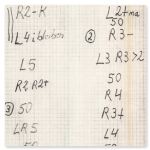 R2-K
L4
L5
R2 R2+
③ 50
LR5
50
L2+ma
50
② R3-
L3 R3>2
50
R4
R3+
L4
50